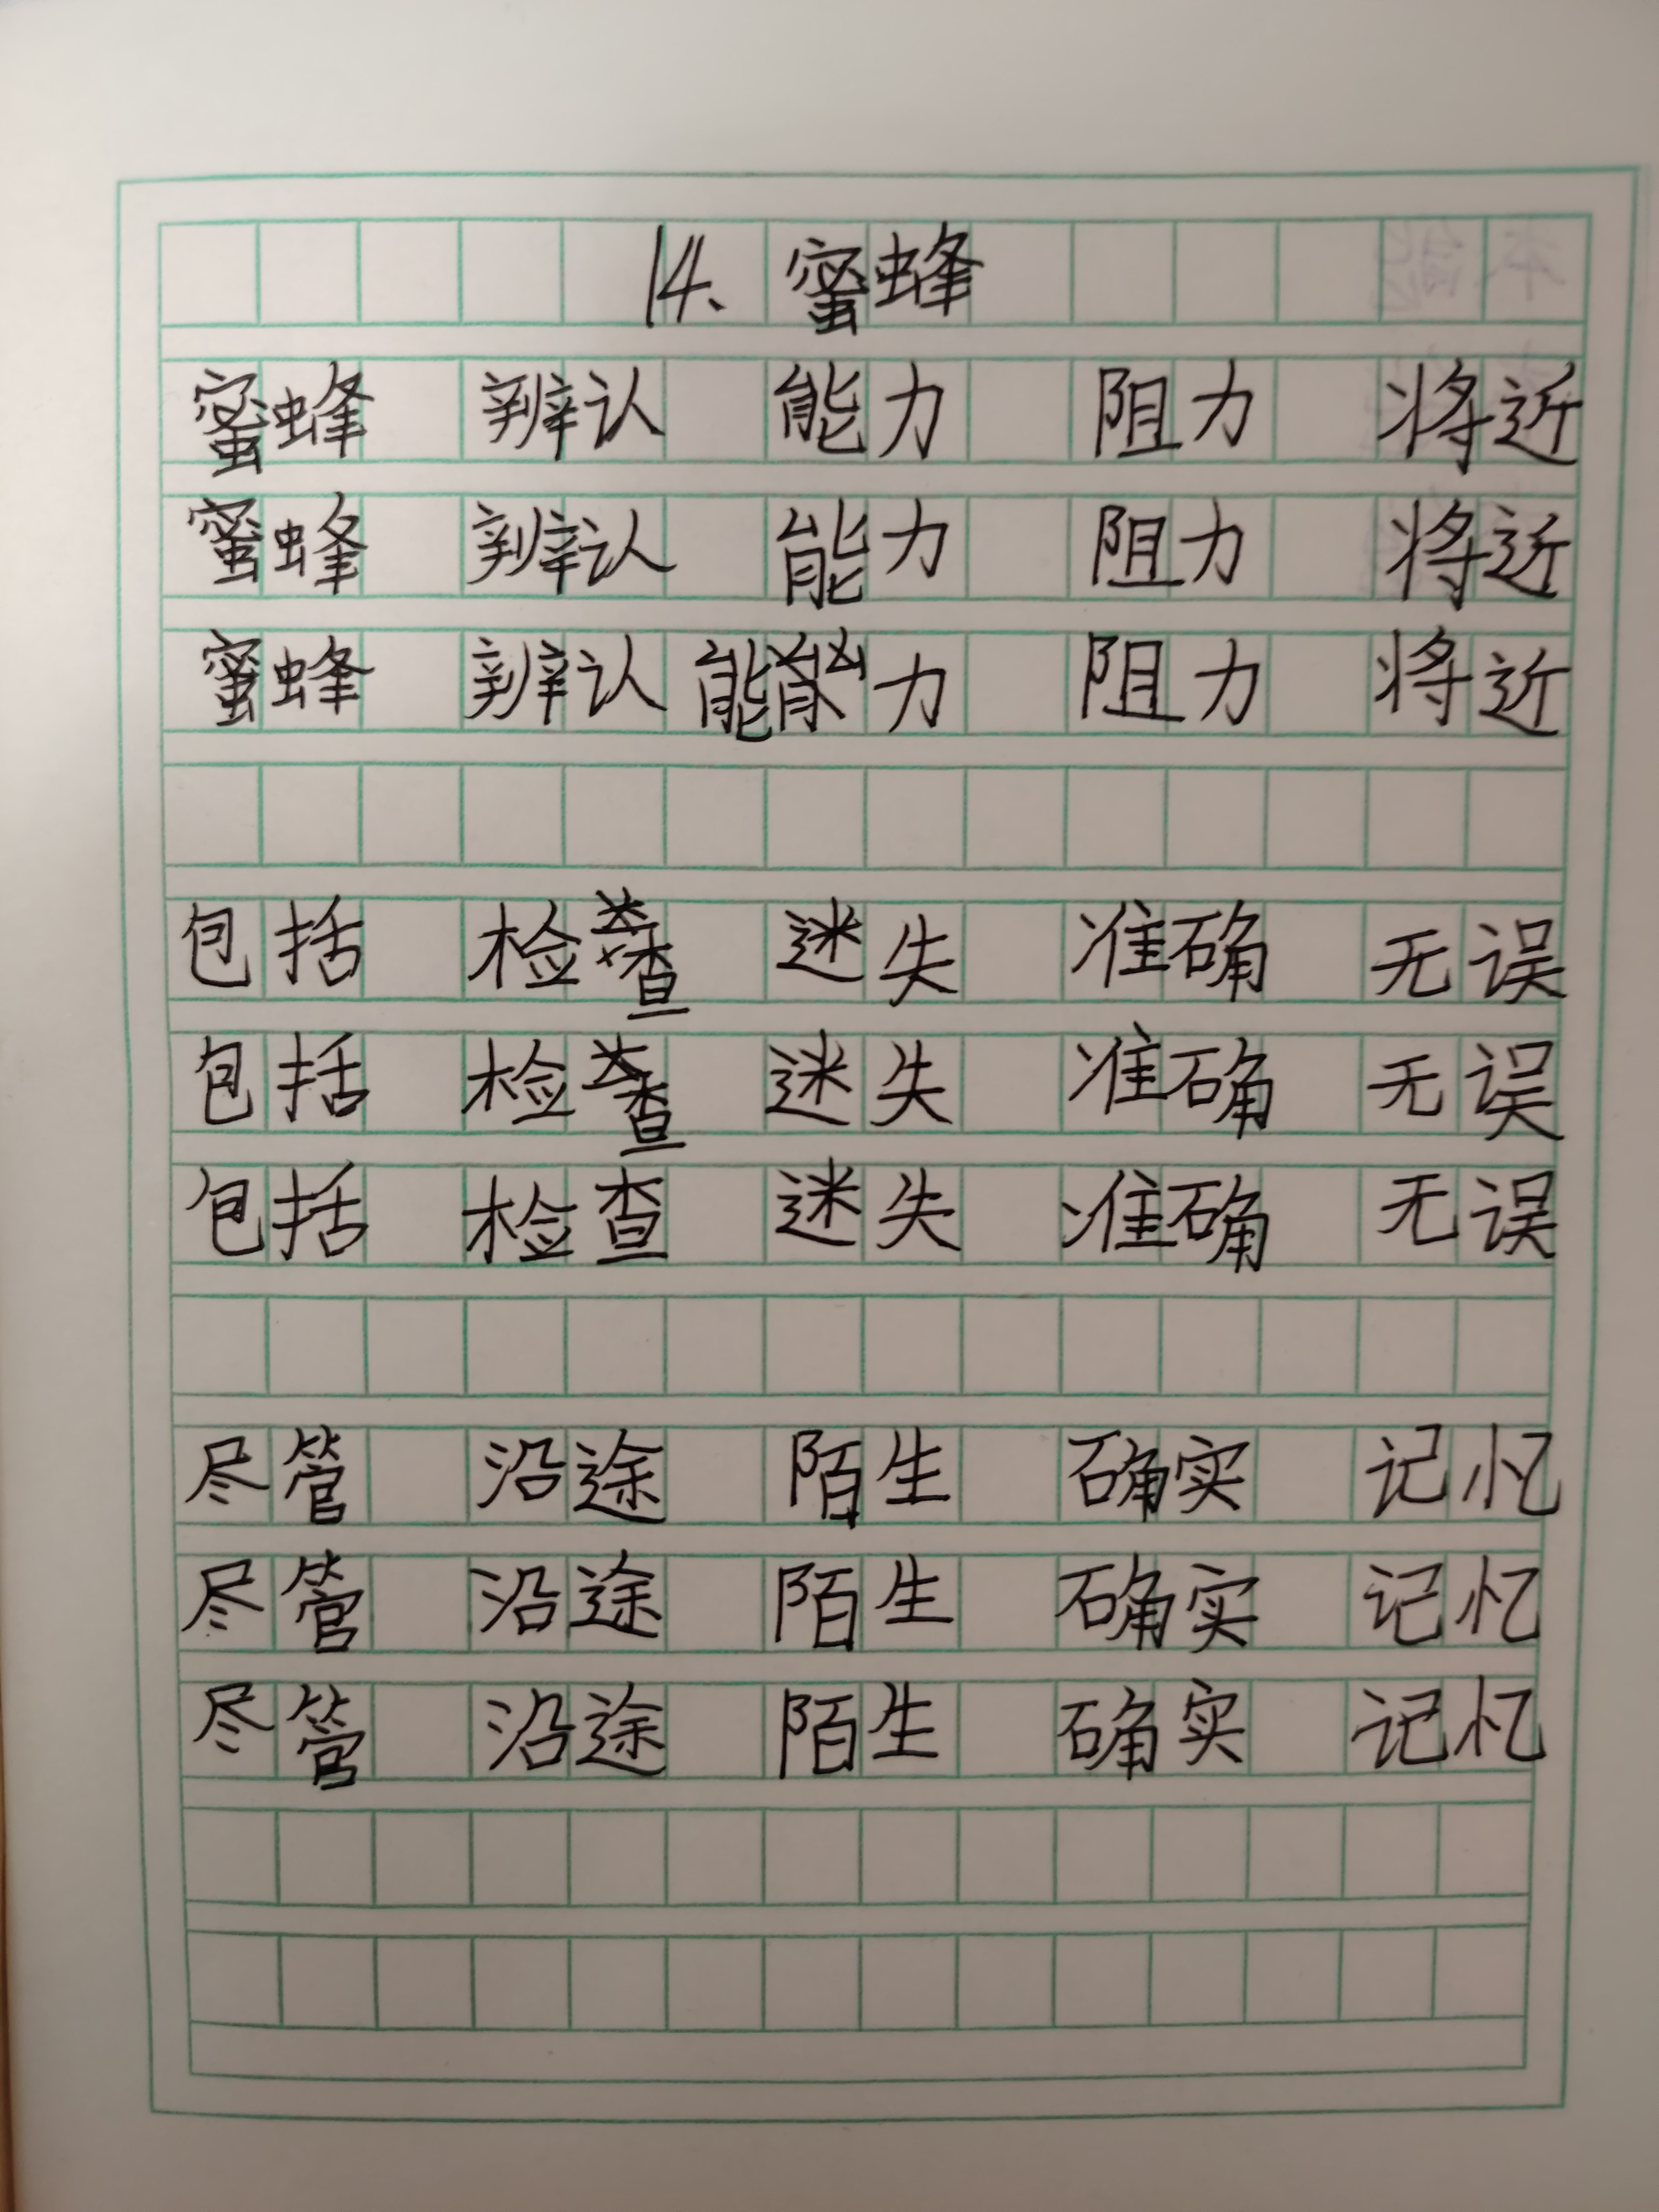 14、蜜蜂
蜜蜂 辨认 能力 阻力 将近
蜜蜂 辨认 能力 阻力 将近
蜜蜂 辨认 能力 阻力 将近
包括 检查 迷失 准确 无误
包括 检查 迷失 准确 无误
包括 检查 迷失 准确 无误
尽管 沿途 陌生 确实 记忆
尽管 沿途 陌生 确实 记忆
尽管 沿途 陌生 确实 记忆